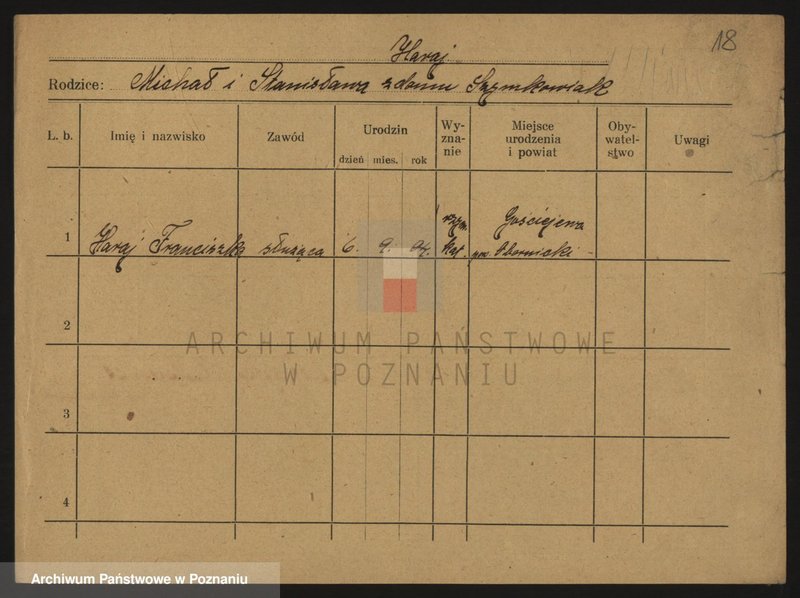 18
Haraj
Rodzice: Michał i Stanisława z domu Szymkowiak
L. b.
Imię i nazwisko
Zawód
Urodzin
dzień mies. rok
Wy-
zna-
nie
Miejsce
urodzenia
i powiat
Oby-
watel-
stwo
Uwagi
1 Haraj Franciszka służąca 6. 9. 04. rzym. kat. Gościejewo
pow. Obornicki
2
3
4
ARCHIWUM PAŃSTWOWE
W POZNANIU
Archiwum Państwowe w Poznaniu